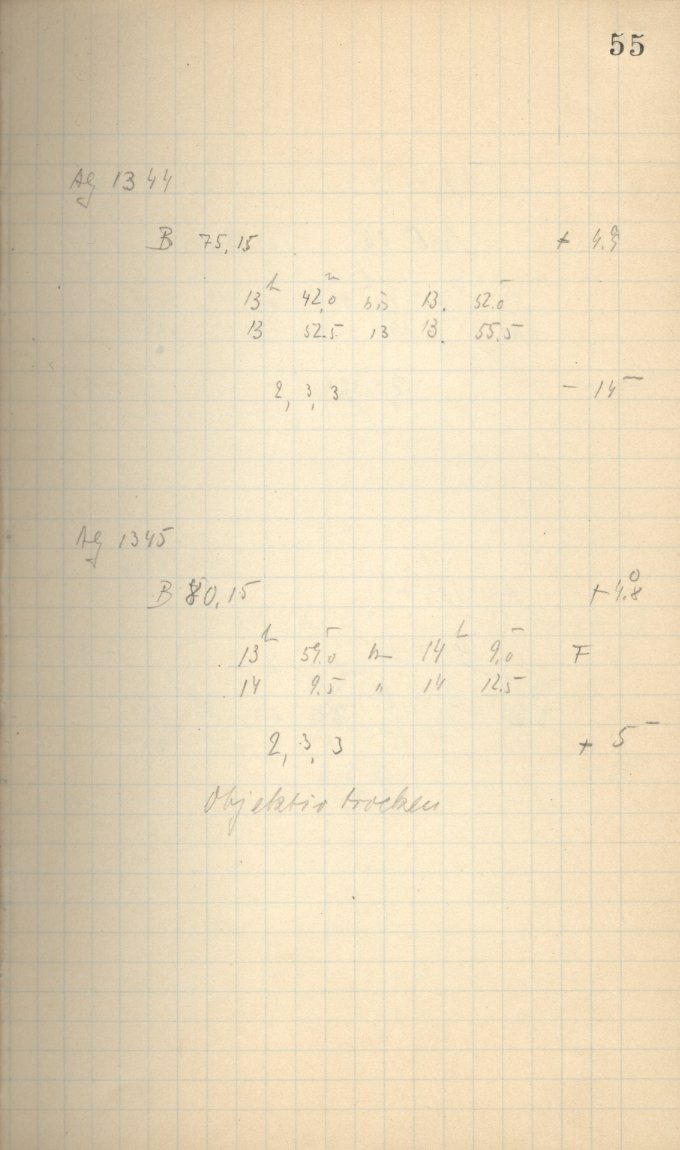 55
Ag 1344
B 75,15 + 4.9
13h 42,0m bis 13. 52.0
13 52.5 13 13. 55.5
2, 3, 3 - 14m
Ag 1345
B 80,15 + 4.8°
13h 59.0 bis 14h 9,0 F
14 9.5 " 14 12.5
2, 3, 3 + 5m
Objektiv trocken